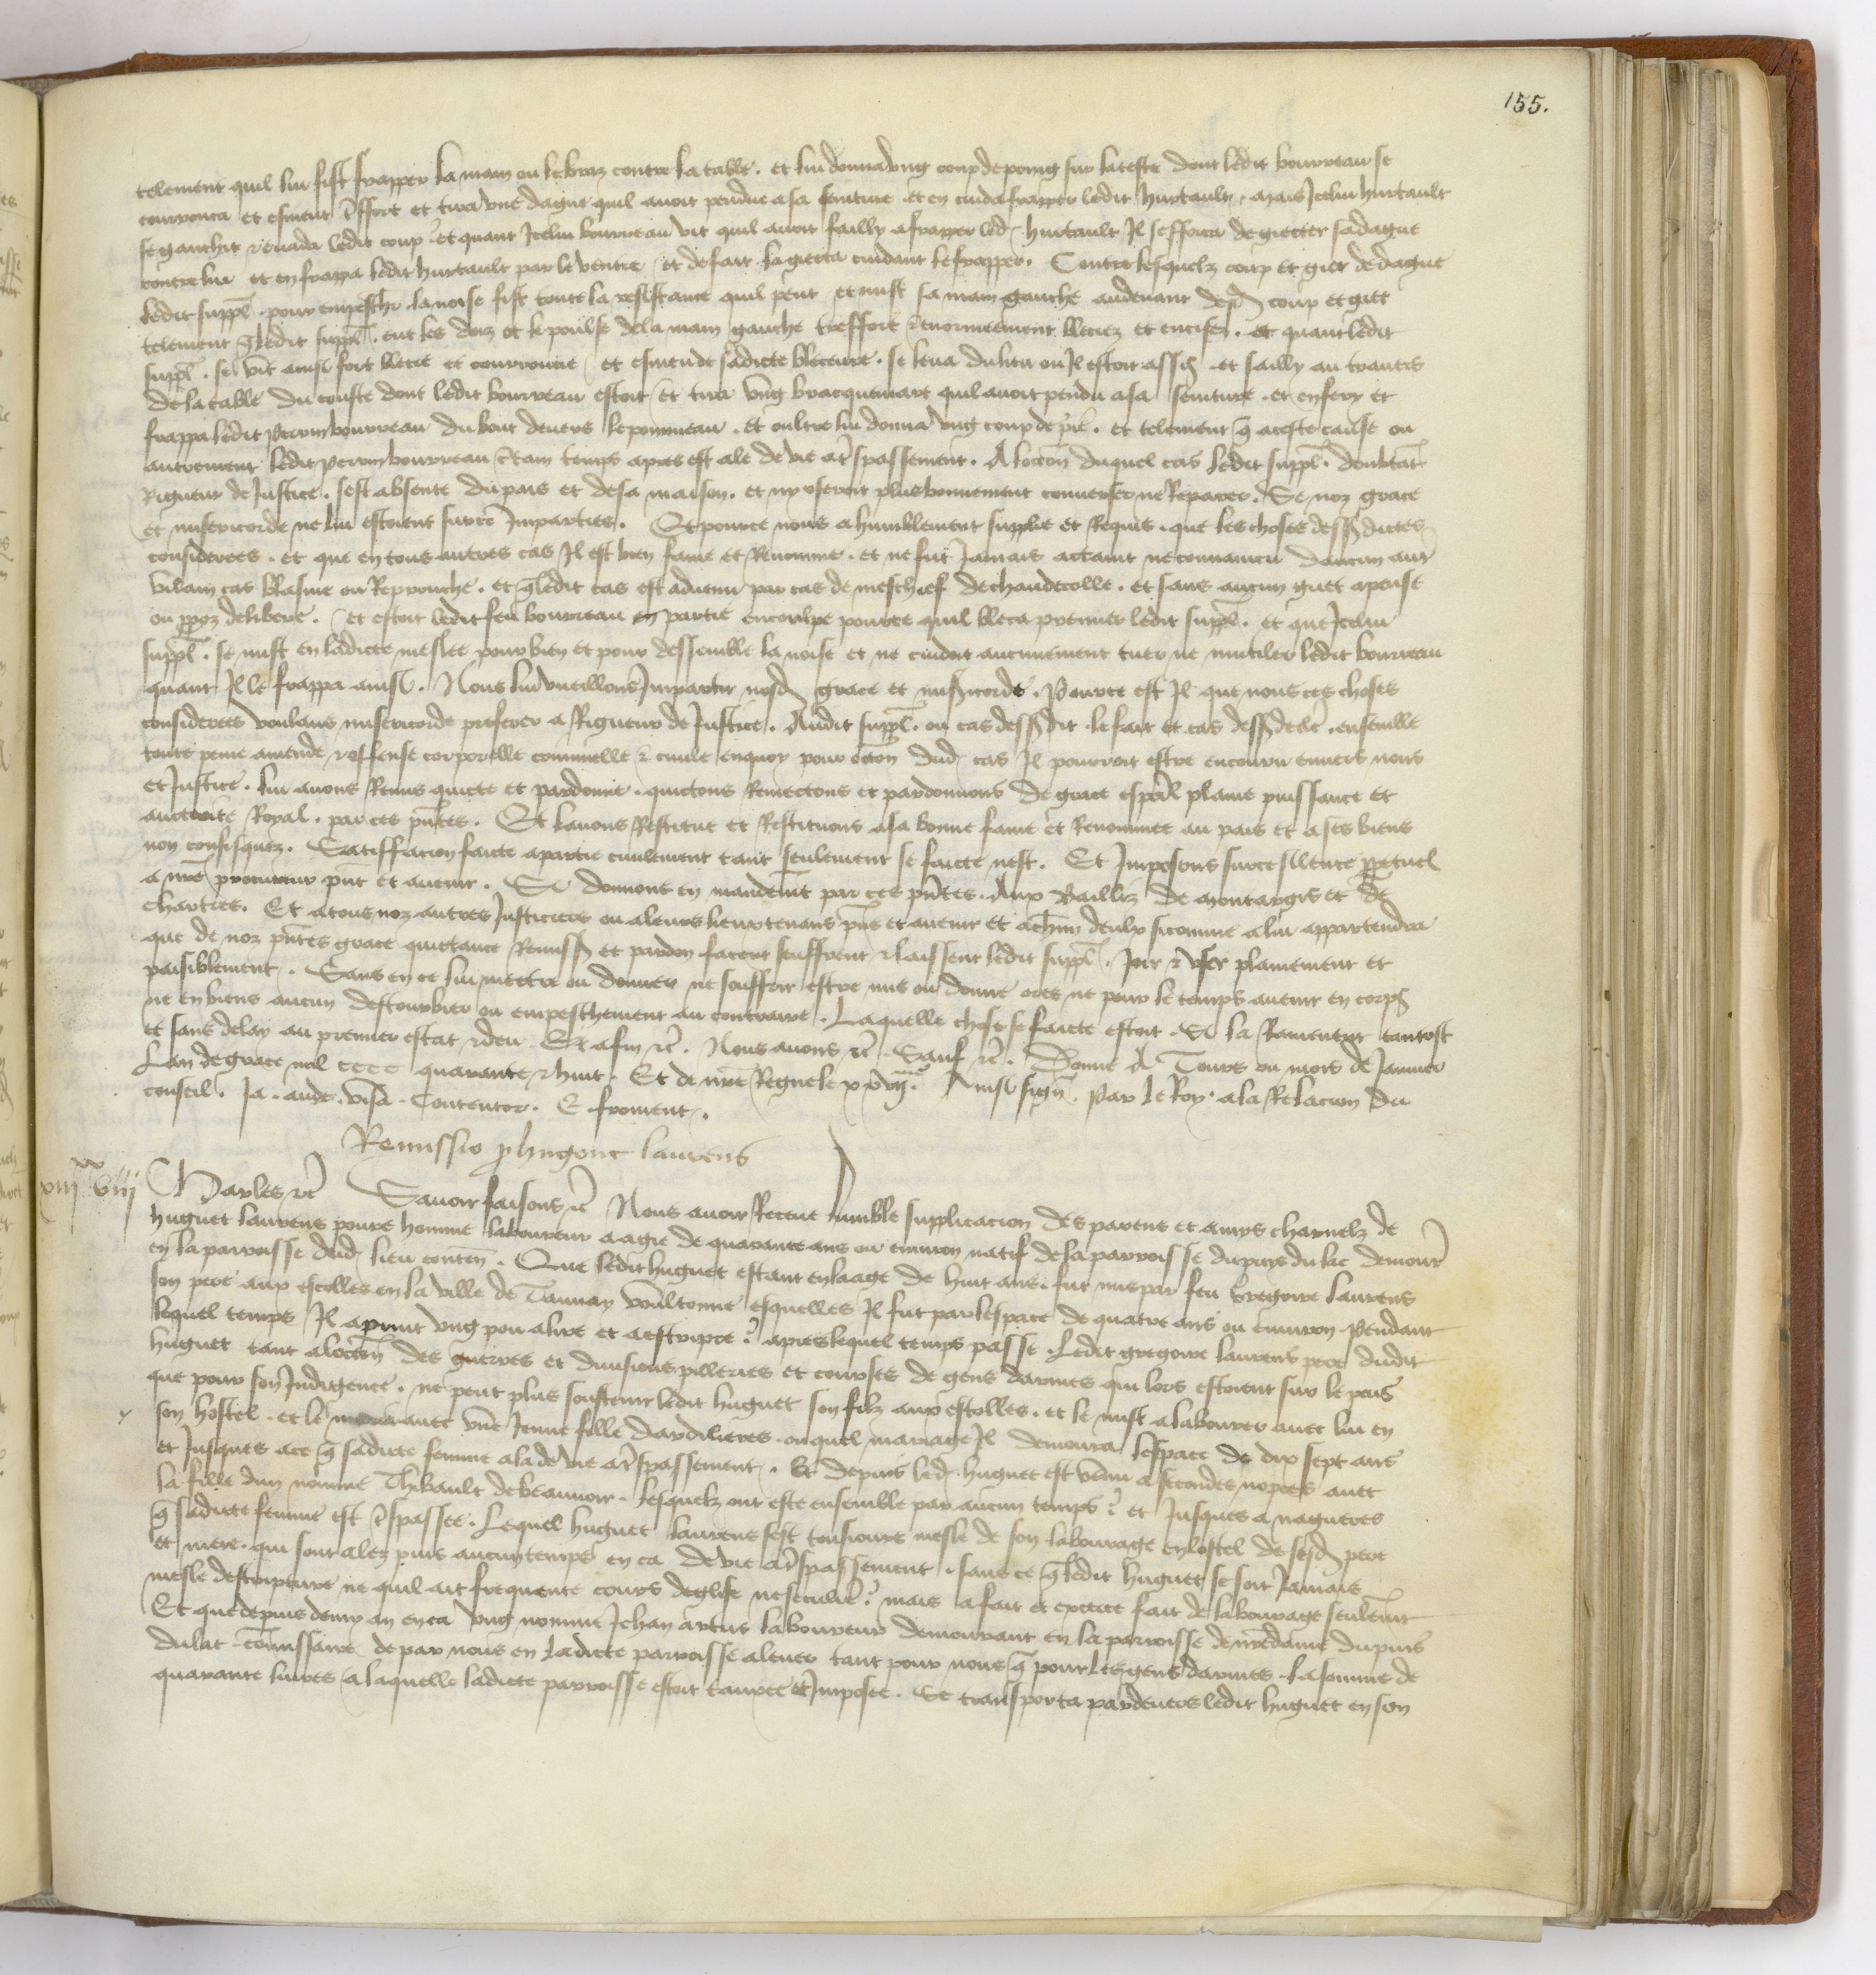 155.
telement quil lui fist frapper la main ou le braz contre la table. et lui donna ung coup de poing sur la teste dont ledit bourreau se
courrouca et esmeut tresfort et tira une dague quil avoit pendue a sa seinture et en cuida frapper ledit hurtault. mais Icelui hurtault
se ganchit & evada ledit coup. et quant Icelui bourreau vit quil avoit failly a frapper led. hurtault Il sefforca de giecter sa dague
contre lui et en frappa ledit hurtault par le ventre et de fait la giecta cuidant le frapper. Contre lesquelz coup et giet de dague
ledit suppl. pour empescher la noise fist toute la resistance quil peut et mist sa main gauche audevant desd. coup et giet
telement q ledit suppl. eut les doiz et le poulse de la main gauche tresfort & enormeement bleciez et encisez. et quant ledit
suppl. se vit ainsi fort blecie et courroucie et esmeu de sadicte bleceure. se leva du lieu ou Il estoit assis et sailly au travers
de la table du couste dont ledit bourreau estoit et tira ung bracquemart quil avoit pendu a sa seinture. et en fery et
frappa ledit Perrin bourreau du bout devers le pommeau. et oultre lui donna ung coup de pie. et telement q a ceste cause ou
autrement ledit Perrin bourreau certain temps apres est ale de vie a trespassement. A loccon duquel cas ledit suppl. doubtant
Rigueur de Justice. sest absente du pais et de sa maison. et ny oseroit plus bonnement converser ne Reparer. Se noz grace
et misericorde ne lui estoient sur ce Imparties. Et pource nous a humblement supplie et Requis. que les choses dessus dictes
considerees. et que en tous autres cas Il est bien fame et Renomme. et ne fut Jamais actaint ne convaincu daucun autre
vilain cas blasme ou Reprouche. et q ledit cas est advenu par cas de meschief de chaudecolle. et sans aucun guet apense
ou propoz delibere. et estoit ledit feu bourreau en partie encoulpe pource quil bleca premier ledit suppl. et que Icelui
suppl. se mist en ladicte meslee pour bien et pour dessemble la noise et ne cuidoit aucunement tuer ne mutiler ledit bourreau
quant Il le frappa ainsi. Nous lui vueillons Impartir nosd. grace et misericorde. Pource est Il que nous ces choses
considerees voulans misericorde preferer a Rigueur de Justice. Audit suppl. ou cas dessusdit le fait et cas dessus declere. ensemble
toute peine amende & offense corporelle criminelle & civile enquoy pour occon dud. cas Il pourroit estre encouru envers nous
et Justice. lui avons Remis quicte et pardonne. quictons Remectons et pardonnons De grace especial plaine puissance et
auctorite Royal. par ces pntes. Et lavons Restitue et Restituons a sa bonne fame et Renommee au pais et a ses biens
non confisquez. Satisfacion faicte a partie civilement tant seulement se faicte nest. Et Imposons sur ce silence perpetuel
a nre procureur pnt et avenir. Si donnons en mandemt par ces pntes. Aux Bailliz de Montargis et de
chartres. Et a tous noz autres Justiciers ou a leurs lieuxtenans pns et avenir et a chun deulx si comme a lui appartendra
que de noz pntes grace quictance Remiss. et pardon facent seuffrent & laissent ledit suppl. Joir & user plainement et
paisiblement. Sans en ce lui mectre ou donner ne souffrir estre mis ou donne ores ne pour le temps avenir en corps
ne en biens aucun destourbier ou empeschement au contraire. Laquelle chose se faicte estoit. Si la Ramenent tantost
et sans delay au premier estat & deu. Et afin etc. Nous avons etc. Sauf etc. Donne A Tours ou mois de Janvier
Lan de grace mil cccc quarante & huit. Et de nre Regne le xxvij.me Ainsi sign. Par le Roy. a la Relacion du
conseil. Ja. aude. visa. Contentor. E. froment.
Remissio p hugone laurens
xx
viij viij
Charles etc Savoir faisons etc Nous avoir Receue humble supplicacion des parens et amys charnelz de
huguet laurens povre homme laboureur aagie de quarante ans ou environ natif de la parroisse du puy du lac demour.
en la parroisse dud. lieu conten. Que ledit huguet estant en laage de huit ans. fut mis par feu Gregoire laurens
son pere aux escolles en la ville de Taunay voultonne esquelles Il fut par lespace de quatre ans ou environ. Pendant
lequel temps Il aprint ung pou a lire et a escripre. apres lequel temps passe. Ledit gregoire laurens pere dudit
huguet tant a loccon des guerres et divisions pilleries et courses de gens darmes qui lors estoient sur le pais
que pour son Indigence. ne peut plus soustenir ledit huguet son filz aux escolles. et le mist a labourer avec lui en
son hostel. et le avec une Jeune fille dardilieres. ouquel mariage Il demoura lespace de dix sept ans
et Jusques a ce q sadicte femme ala de vie a trespassement. Et depuis led. huguet est venu a secondes nopces avec
la fille dun nomme Thibault de beaumoir. lesquelz ont este ensemble par aucun temps. et Jusques a nagueres
q sadicte femme est trespassee. Lequel huguet laurens sest tousiours mesle de son labourage en lostel de sesd. pere
et mere. qui sont alez puis aucun temps en ca de vie a trespassement. sans ce q ledit huguet se soit Jamais
mesle descripture ne quil ait frequente cours deglise ne seculier. mais a fait et exerce fait de labourage seulemt
Et que depuis demy an en ca ung nomme Jehan artus laboureur demourant en la parroisse de nredame du puis
du lac. commissaire de par nous en ladicte parroisse a lever tant pour nous q pour les gens darmes la somme de
quarante livres a laquelle ladicte parroisse estoit tauxee et Imposee. Se transporta pardevers ledit huguet en son